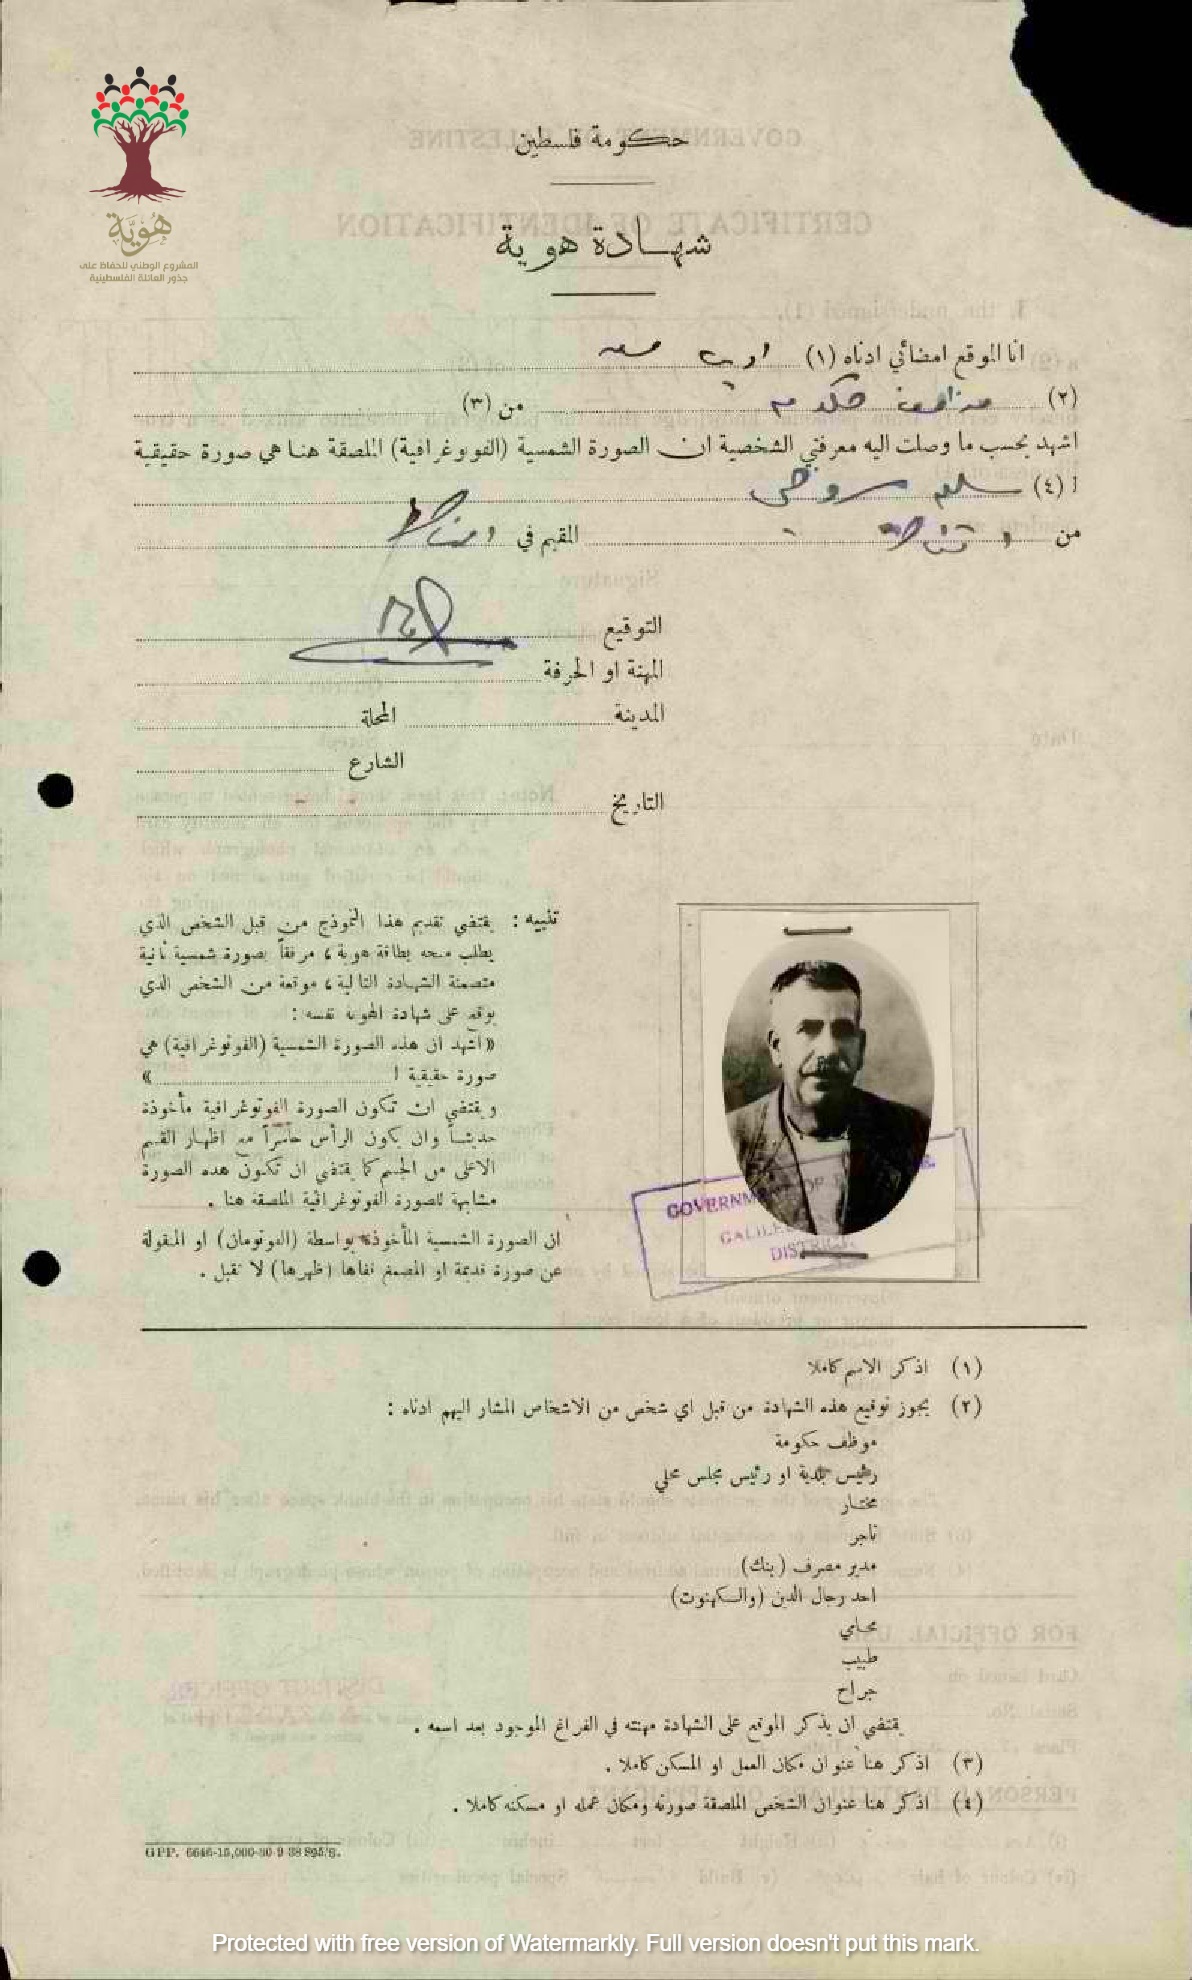 هُوِيَّة
المشروع الوطني للحفاظ على
جذور العائلة الفلسطينية
حكومة فلسطين
شهادة هوية
انا الموقع امضائي ادناه (١)
(٢) موظف حكومة من (٣)
اشهد بحسب ما وصلت اليه معرفتي الشخصية ان الصورة الشمسية (الفوتوغرافية) الملصقة هنا هي صورة حقيقية
ا (٤) سليم
من المقيم في
التوقيع
المهنة او الحرفة
المدينة المحلة
الشارع
التاريخ
تنبيه : يقتضي تقديم هذا النموذج من قبل الشخص الذي
يطلب منحه بطاقة هوية ، مرفقاً بصورة شمسية ثانية
متضمنة الشهادة التالية ، موقعة من الشخص الذي
يوقع على شهادة الهوية نفسه :
« اشهد ان هذه الصورة الشمسية (الفوتوغرافية) هي
صورة حقيقية ا »
ويقتضي ان تكون الصورة الفوتوغرافية مأخوذة
حديثاً وان يكون الرأس حاسراً مع اظهار القسم
الاعلى من الجسم كما يقتضي ان تكون هذه الصورة
مشابهة للصورة الفوتوغرافية الملصقة هنا .
ان الصورة الشمسية المأخوذة بواسطة (الفوتومان) او المنقولة
عن صورة قديمة او المصمغ قفاها (ظهرها) لا تقبل .
GOVERNM OF
GALILE
DISTRICT
(١) اذكر الاسم كاملا
(٢) يجوز توقيع هذه الشهادة من قبل اي شخص من الاشخاص المشار اليهم ادناه :
موظف حكومة
رئيس بلدية او رئيس مجلس محلي
مختار
تاجر
مدير مصرف (بنك)
احد رجال الدين (والكهنوت)
محامي
طبيب
جراح
يقتضي ان يذكر الموقع على الشهادة مهنته في الفراغ الموجود بعد اسمه .
(٣) اذكر هنا عنوان مكان العمل او المسكن كاملا .
(٤) اذكر هنا عنوان الشخص الملصقة صورته ومكان عمله او مسكنه كاملا .
GPP. 6646-15,000-30-9-38 S95/S.
Protected with free version of Watermarkly. Full version doesn't put this mark.